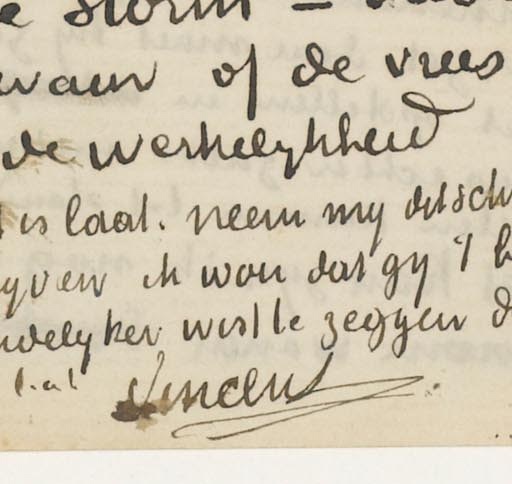 e storm —
waur of de vrees
de werkelykheid
is laat. neem my dit schr
yven ik wou dat gy 't b
uidelyker wist te zeggen d
Vincent